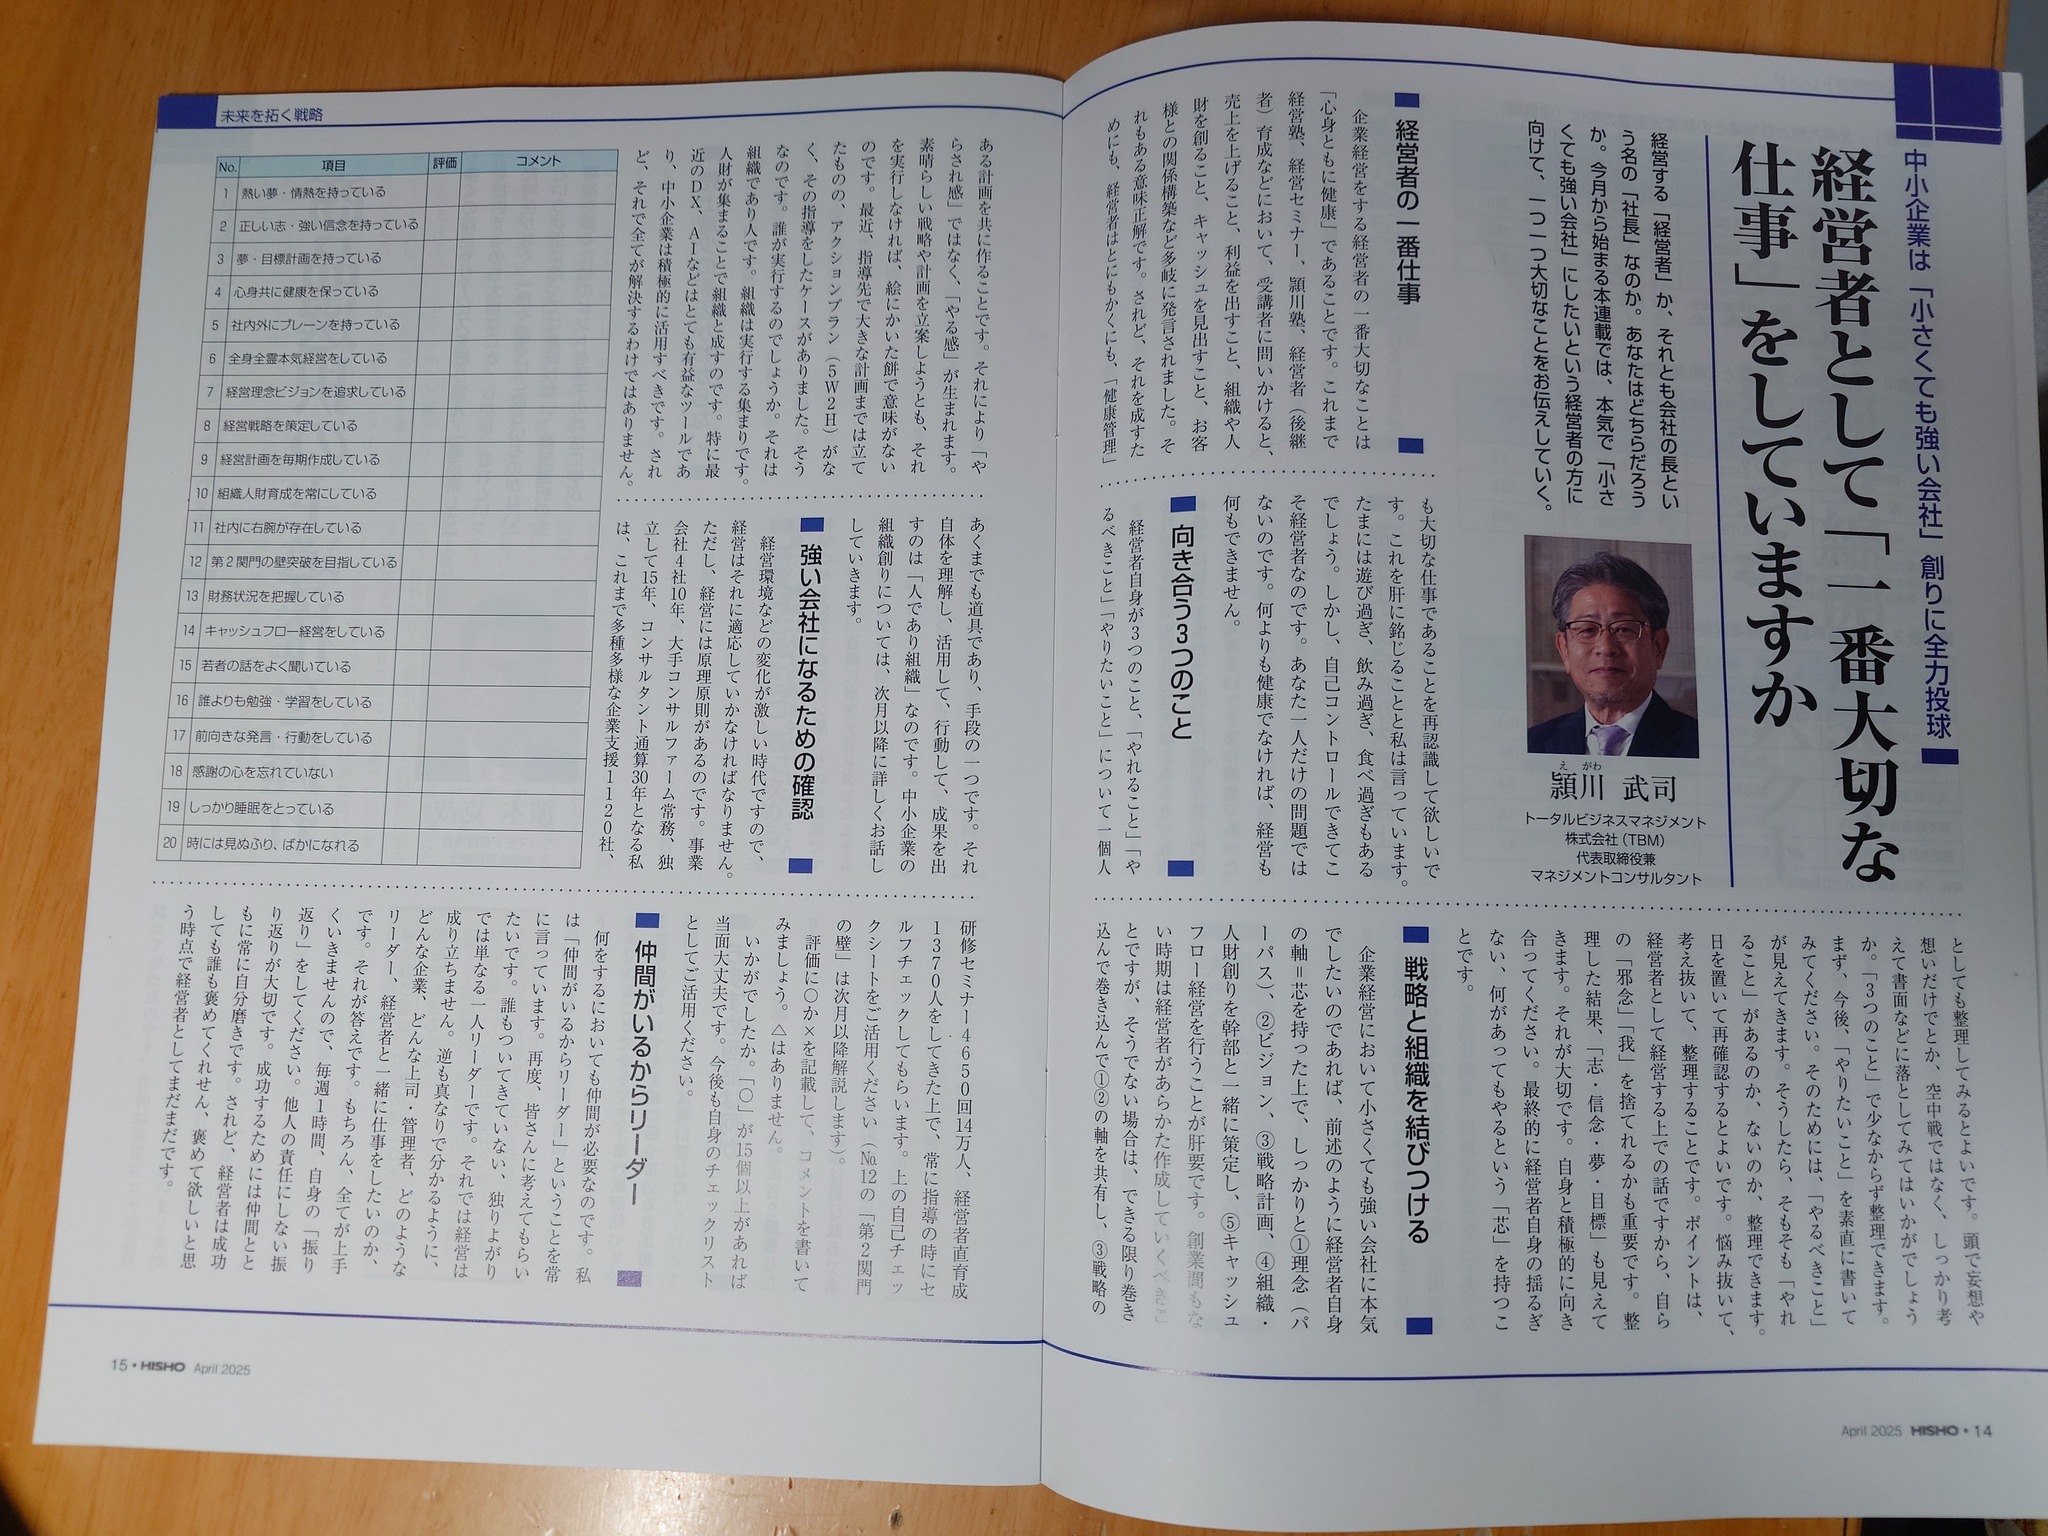 中小企業は「小さくても強い会社」創りに全力投球
経営者として「一番大切な
仕事」をしていますか
経営する「経営者」か、それとも会社の長とい
う名の「社長」なのか。あなたはどちらだろう
か。今月から始まる本連載では、本気で「小さ
くても強い会社」にしたいという経営者の方に
向けて、一つ一つ大切なことをお伝えしていく。
え がわ
頴川 武司
トータルビジネスマネジメント
株式会社(TBM)
代表取締役兼
マネジメントコンサルタント
経営者の一番仕事
企業経営をする経営者の一番大切なことは
「心身ともに健康」であることです。これまで
経営塾、経営セミナー、頴川塾、経営者(後継
者)育成などにおいて、受講者に問いかけると、
売上を上げること、利益を出すこと、組織や人
財を創ること、キャッシュを見出すこと、お客
様との関係構築など多岐に発言されました。そ
れもある意味正解です。されど、それを成すた
めにも、経営者はとにもかくにも、「健康管理」
も大切な仕事であることを再認識して欲しいで
す。これを肝に銘じることと私は言っています。
たまには遊び過ぎ、飲み過ぎ、食べ過ぎもある
でしょう。しかし、自己コントロールできてこ
そ経営者なのです。あなた一人だけの問題では
ないのです。何よりも健康でなければ、経営も
何もできません。
向き合う3つのこと
経営者自身が3つのこと、「やれること」「や
るべきこと」「やりたいこと」について一個人
としても整理してみるとよいです。頭で妄想や
想いだけでとか、空中戦ではなく、しっかり考
えて書面などに落としてみてはいかがでしょう
か。「3つのこと」で少なからず整理できます。
まず、今後、「やりたいこと」を素直に書いて
みてください。そのためには、「やるべきこと」
が見えてきます。そうしたら、そもそも「やれ
ること」があるのか、ないのか、整理できます。
日を置いて再確認するとよいです。悩み抜いて、
考え抜いて、整理することです。ポイントは、
経営者として経営する上での話ですから、自ら
の「邪念」「我」を捨てれるかも重要です。整
理した結果、「志・信念・夢・目標」も見えて
きます。それが大切です。自身と積極的に向き
合ってください。最終的に経営者自身の揺るぎ
ない、何があってもやるという「芯」を持つこ
とです。
戦略と組織を結びつける
企業経営において小さくても強い会社に本気
でしたいのであれば、前述のように経営者自身
の軸=芯を持った上で、しっかりと①理念(パ
ーパス)、②ビジョン、③戦略計画、④組織・
人財創りを幹部と一緒に策定し、⑤キャッシュ
フロー経営を行うことが肝要です。創業間もな
い時期は経営者があらかた作成していくべきこ
とですが、そうでない場合は、できる限り巻き
込んで巻き込んで①②の軸を共有し、③戦略の
April 2025 HISHO・14
未来を拓く戦略
ある計画を共に作ることです。それにより「や
らされ感」ではなく、「やる感」が生まれます。
素晴らしい戦略や計画を立案しようとも、それ
を実行しなければ、絵にかいた餅で意味がない
のです。最近、指導先で大きな計画までは立て
たものの、アクションプラン(5W2H)がな
く、その指導をしたケースがありました。そう
なのです。誰が実行するのでしょうか。それは
組織であり人です。組織は実行する集まりです。
人財が集まることで組織と成すのです。特に最
近のDX、AIなどはとても有益なツールであ
り、中小企業は積極的に活用すべきです。され
ど、それで全てが解決するわけではありません。
あくまでも道具であり、手段の一つです。それ
自体を理解し、活用して、行動して、成果を出
すのは「人であり組織」なのです。中小企業の
組織創りについては、次月以降に詳しくお話し
していきます。
強い会社になるための確認
経営環境などの変化が激しい時代ですので、
経営はそれに適応していかなければなりません。
ただし、経営には原理原則があるのです。事業
会社4社10年、大手コンサルファーム常務、独
立して15年、コンサルタント通算30年となる私
は、これまで多種多様な企業支援1120社、
研修セミナー4650回14万人、経営者直育成
1370人をしてきた上で、常に指導の時にセ
ルフチェックしてもらいます。上の自己チェッ
クシートをご活用ください(№12の「第2関門
の壁」は次月以降解説します)。
評価に〇か×を記載して、コメントを書いて
みましょう。△はありません。
いかがでしたか。「〇」が15個以上があれば
当面大丈夫です。今後も自身のチェックリスト
としてご活用ください。
仲間がいるからリーダー
何をするにおいても仲間が必要なのです。私
は「仲間がいるからリーダー」ということを常
に言っています。再度、皆さんに考えてもらい
たいです。誰もついてきていない、独りよがり
では単なる一人リーダーです。それでは経営は
成り立ちません。逆も真なりで分かるように、
どんな企業、どんな上司・管理者、どのような
リーダー、経営者と一緒に仕事をしたいのか、
です。それが答えです。もちろん、全てが上手
くいきませんので、毎週1時間、自身の「振り
返り」をしてください。他人の責任にしない振
り返りが大切です。成功するためには仲間とと
もに常に自分磨きです。されど、経営者は成功
しても誰も褒めてくれせん、褒めて欲しいと思
う時点で経営者としてまだまだです。
No. 項目 評価 コメント
1 熱い夢・情熱を持っている
2 正しい志・強い信念を持っている
3 夢・目標計画を持っている
4 心身共に健康を保っている
5 社内外にブレーンを持っている
6 全身全霊本気経営をしている
7 経営理念ビジョンを追求している
8 経営戦略を策定している
9 経営計画を毎期作成している
10 組織人財育成を常にしている
11 社内に右腕が存在している
12 第2関門の壁突破を目指している
13 財務状況を把握している
14 キャッシュフロー経営をしている
15 若者の話をよく聞いている
16 誰よりも勉強・学習をしている
17 前向きな発言・行動をしている
18 感謝の心を忘れていない
19 しっかり睡眠をとっている
20 時には見ぬふり、ばかになれる
15・HISHO April 2025